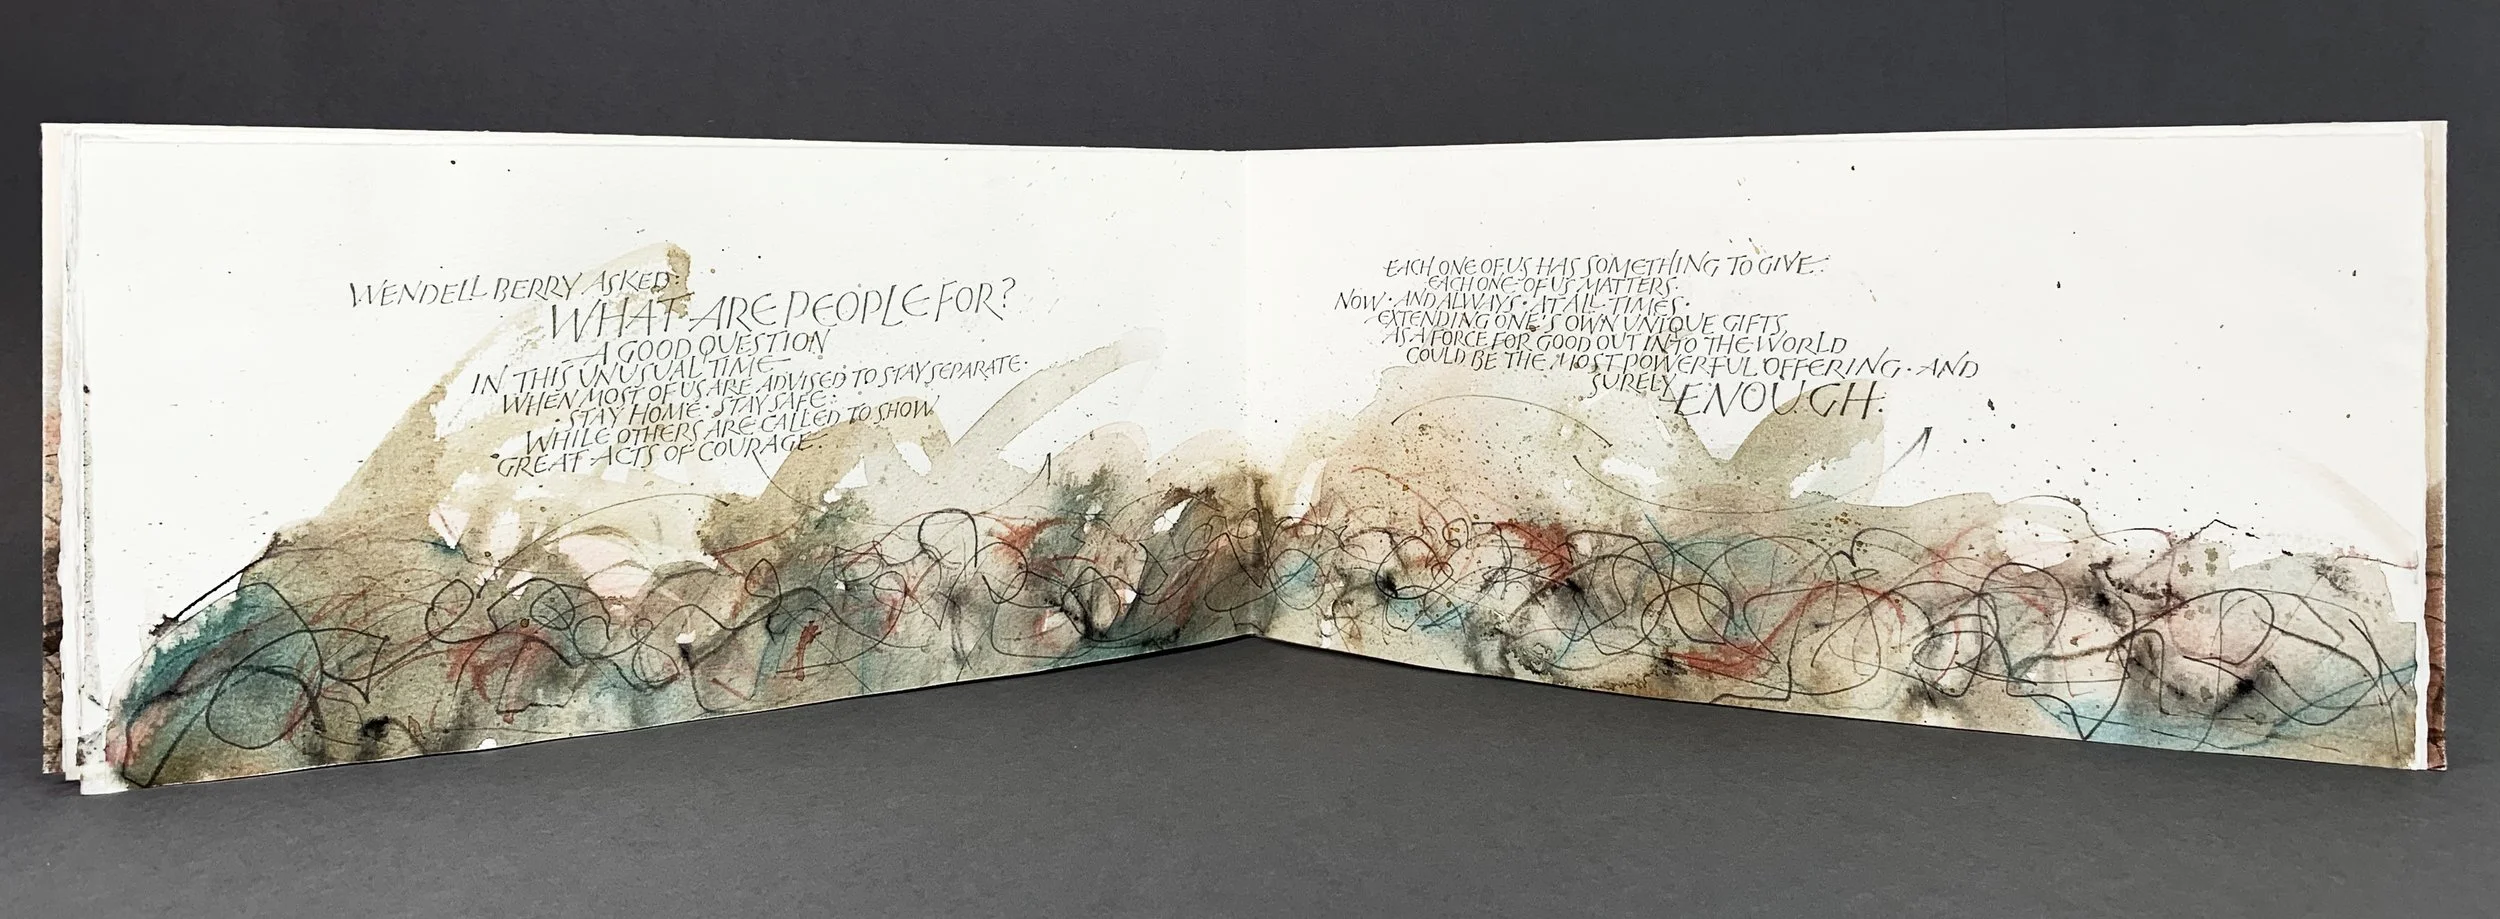 WENDELL BERRY ASKED:
WHAT ARE PEOPLE FOR?
A GOOD QUESTION
IN THIS UNUSUAL TIME
WHEN MOST OF US ARE ADVISED TO STAY SEPARATE·
· STAY HOME · STAY SAFE ·
WHILE OTHERS ARE CALLED TO SHOW
GREAT ACTS OF COURAGE
EACH ONE OF US HAS SOMETHING TO GIVE·
EACH ONE OF US MATTERS·
NOW · AND ALWAYS · AT ALL TIMES ·
EXTENDING ONE'S OWN UNIQUE GIFTS,
AS A FORCE FOR GOOD OUT INTO THE WORLD
COULD BE THE MOST POWERFUL OFFERING · AND
SURELY ENOUGH·